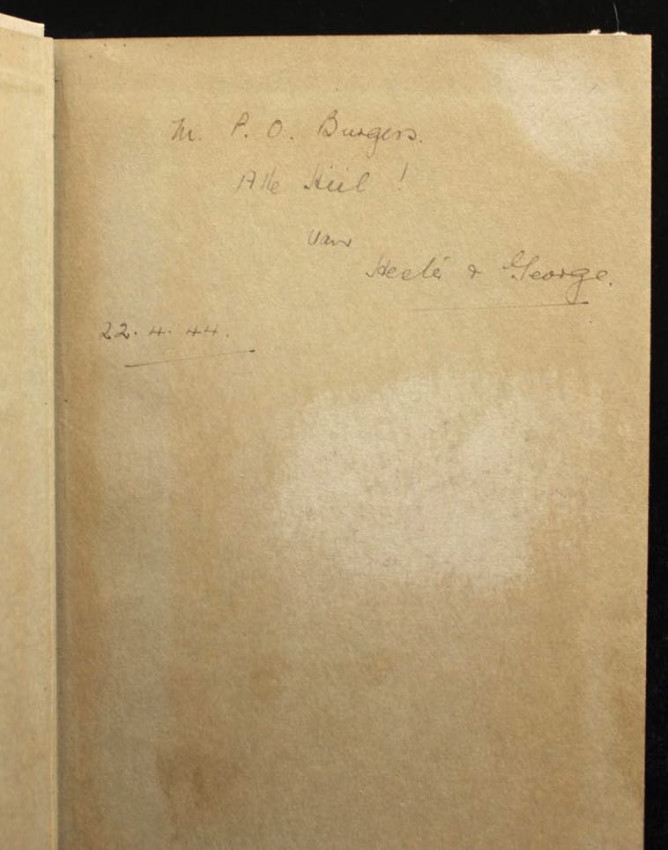 M. P. O. Burgers.
Alle Heil !
van
& George.
22. 4. 44.